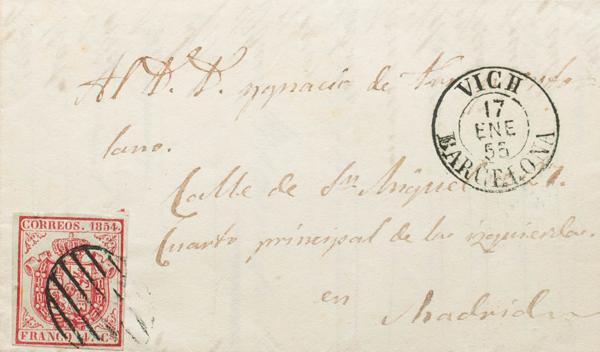 Al D. D. Ygnacio de
lano.
Calle de Sn. Miguel
Cuarto principal de la izquierda.
en
Madrid
VICH
17
ENE
55
BARCELONA
CORREOS. 1854.
FRANCO